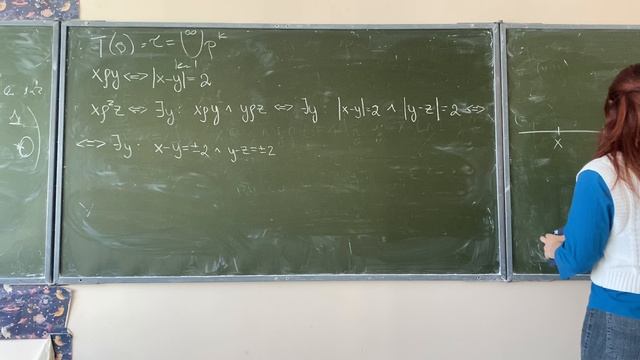 T(ρ) = τ = ⋃_{k=1}^{∞} ρ^k
xρy ⟺ |x-y| = 2
xρ²z ⟺ ∃y: xρy ∧ yρz ⟺ ∃y: |x-y|=2 ∧ |y-z|=2 ⟺
⟺ ∃y: x-y=±2 ∧ y-z=±2
x